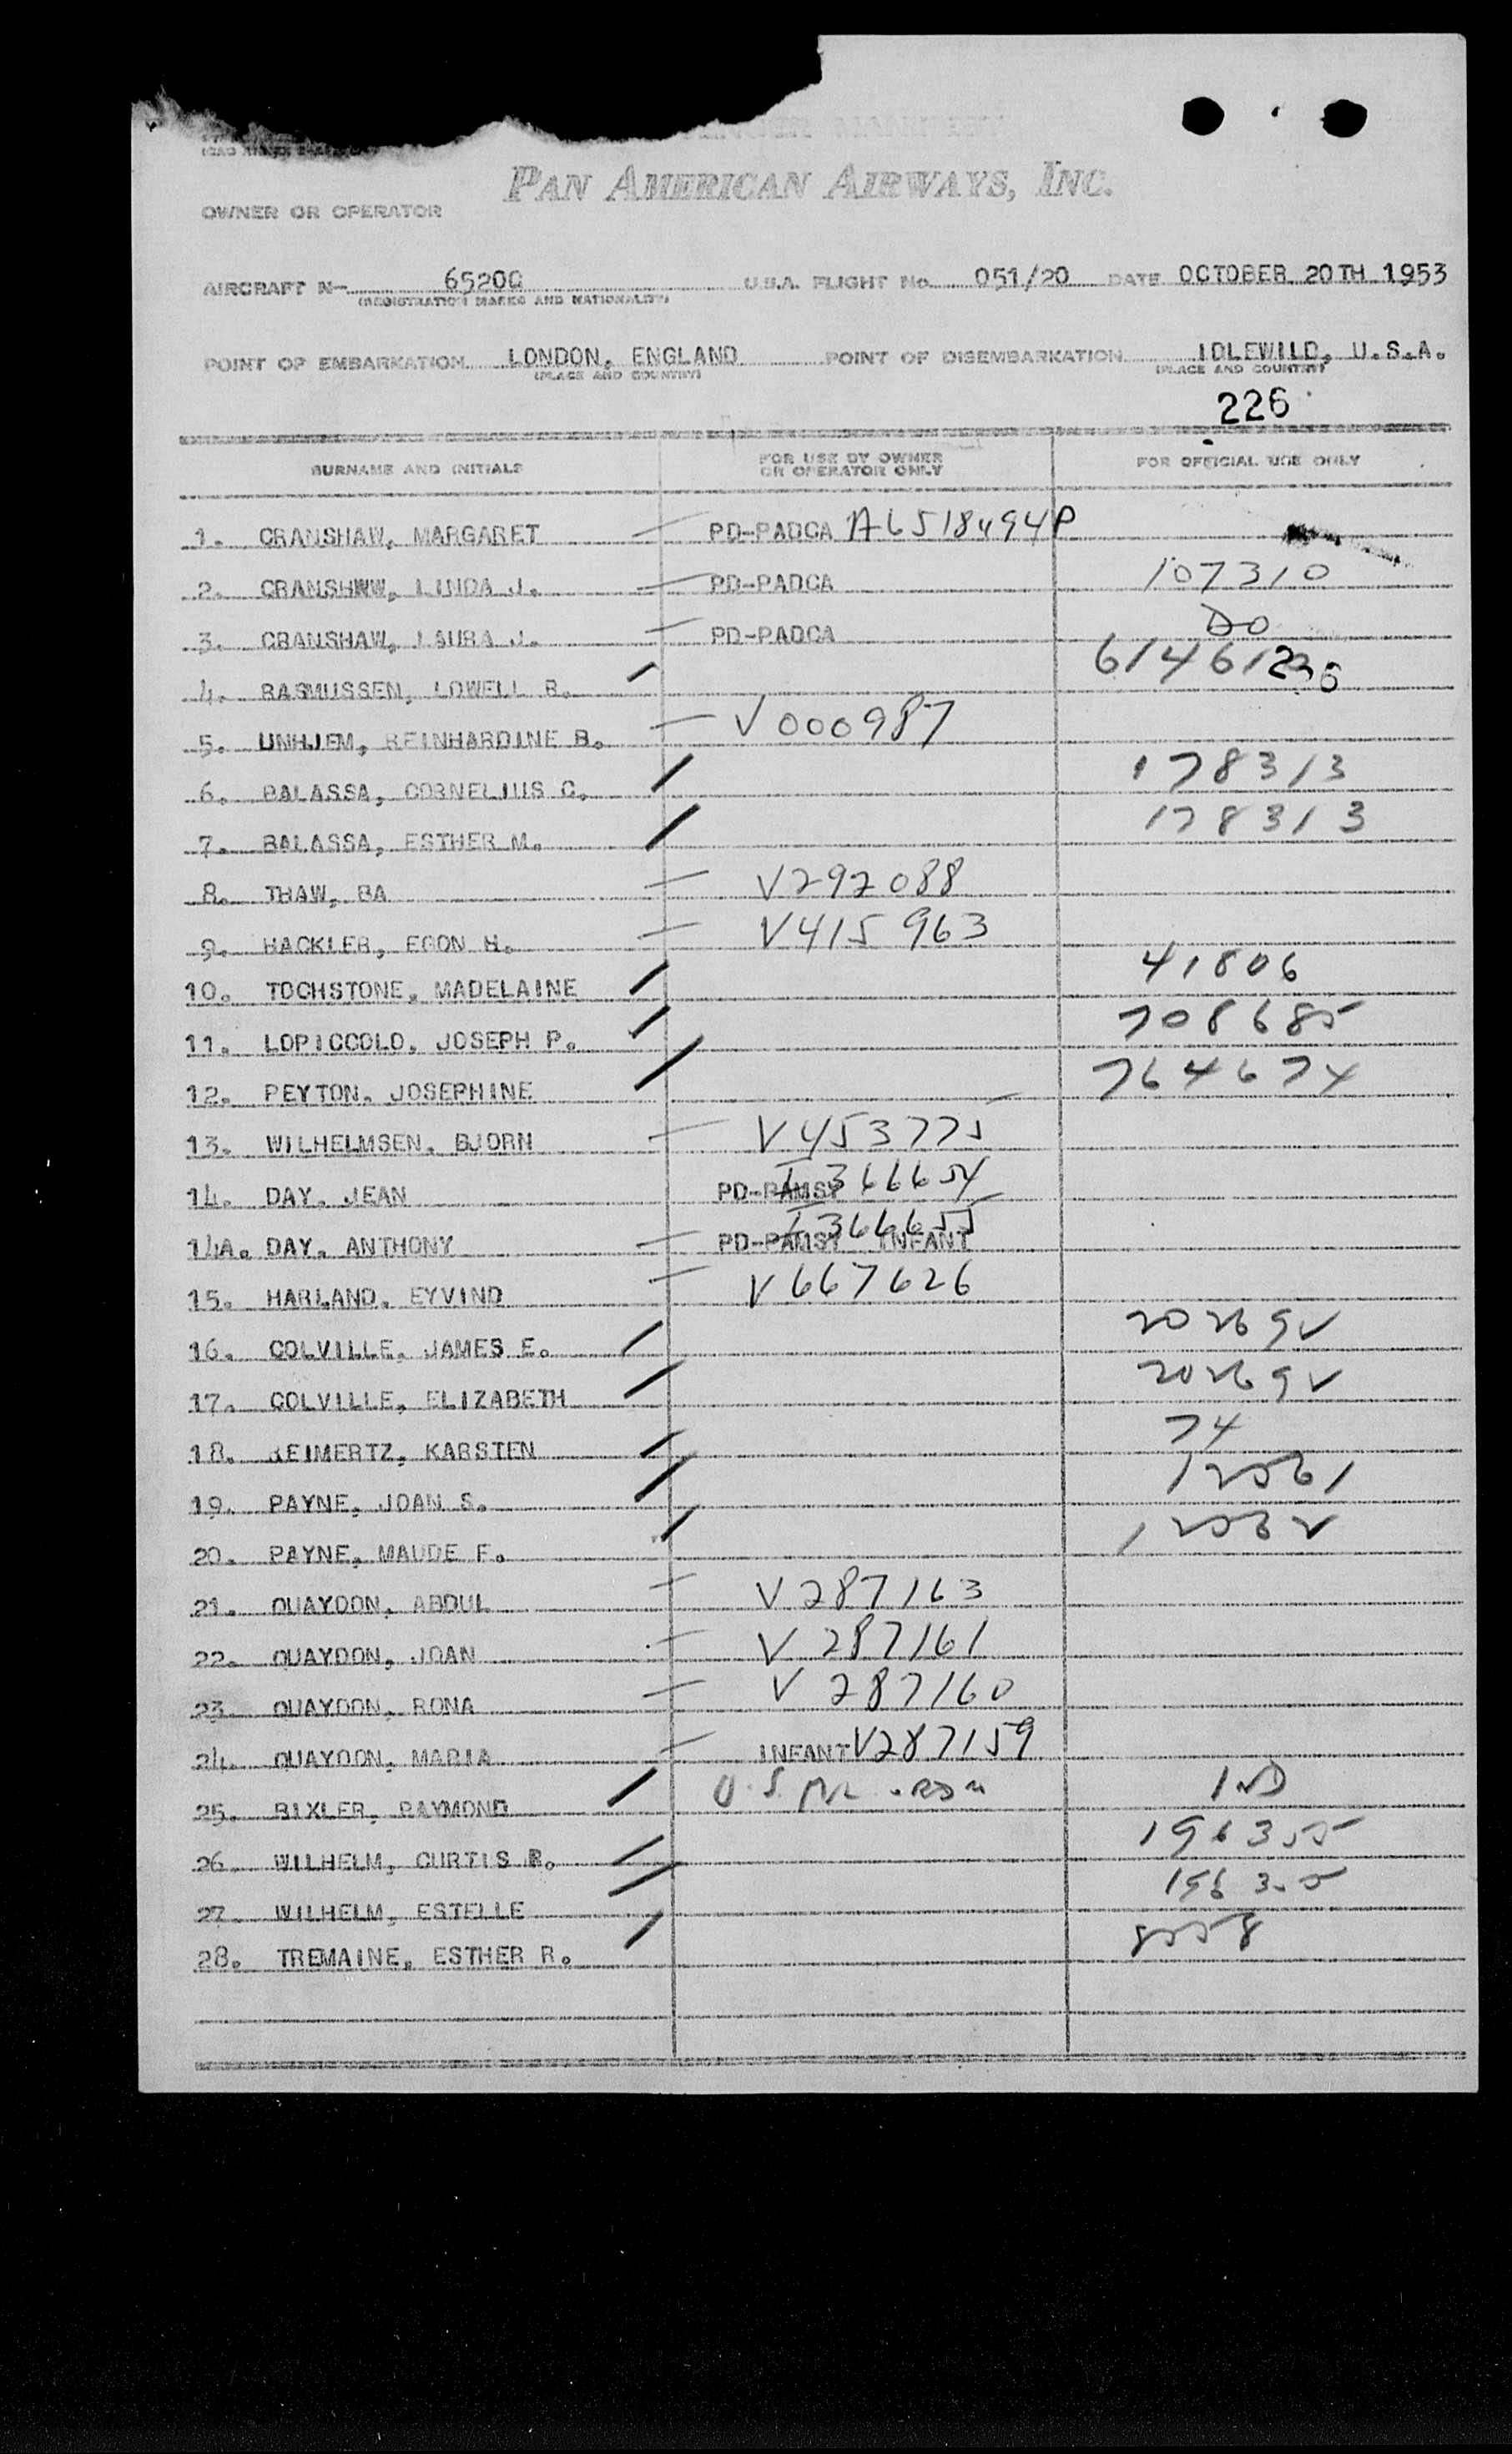 PASSENGER MANIFEST
PAN AMERICAN AIRWAYS, INC.
OWNER OR OPERATOR
AIRCRAFT N- 6520C U.S.A. FLIGHT No. 051/20 DATE OCTOBER 20TH 1953
(REGISTRATION MARKS AND NATIONALITY)
POINT OF EMBARKATION LONDON, ENGLAND POINT OF DISEMBARKATION IDLEWILD, U.S.A.
(PLACE AND COUNTRY) (PLACE AND COUNTRY)
226
SURNAME AND INITIALS FOR USE BY OWNER OR OPERATOR ONLY FOR OFFICIAL USE ONLY
1. CRANSHAW, MARGARET — PD-PADCA A6518494P
2. CRANSHWW, LINDA J. — PD-PADCA 107310
3. CRANSHAW, LAURA J. — PD-PADCA DO
4. RASMUSSEN, LOWELL R. / 61461
5. UNHJEM, REINHARDINE B. — V000987
6. BALASSA, CORNELIUS C. / 178313
7. BALASSA, ESTHER M. / 178313
8. THAW, BA — V292088
9. HACKLER, EGON H. — V415963
10. TOCHSTONE, MADELAINE / 41806
11. LOPICCOLO, JOSEPH P. / 708685
12. PEYTON, JOSEPHINE / 764674
13. WILHELMSEN, BJORN — V453775
14. DAY, JEAN PD-PAMSY I366654
14A. DAY, ANTHONY — PD-PAMSY INFANT I366655
15. HARLAND, EYVIND — V667626
16. COLVILLE, JAMES E. / 202692
17. COLVILLE, ELIZABETH / 202692
18. REIMERTZ, KARSTEN / 74
19. PAYNE, JOAN S. / 12561
20. PAYNE, MAUDE F. / 12562
21. QUAYDON, ABDUL — V287163
22. QUAYDON, JOAN — V287161
23. QUAYDON, RONA — V287160
24. QUAYDON, MARIA — INFANT V287159
25. BIXLER, RAYMOND / U.S.
26. WILHELM, CURTIS R. / 196355
27. WILHELM, ESTELLE /
28. TREMAINE, ESTHER R. / 8558